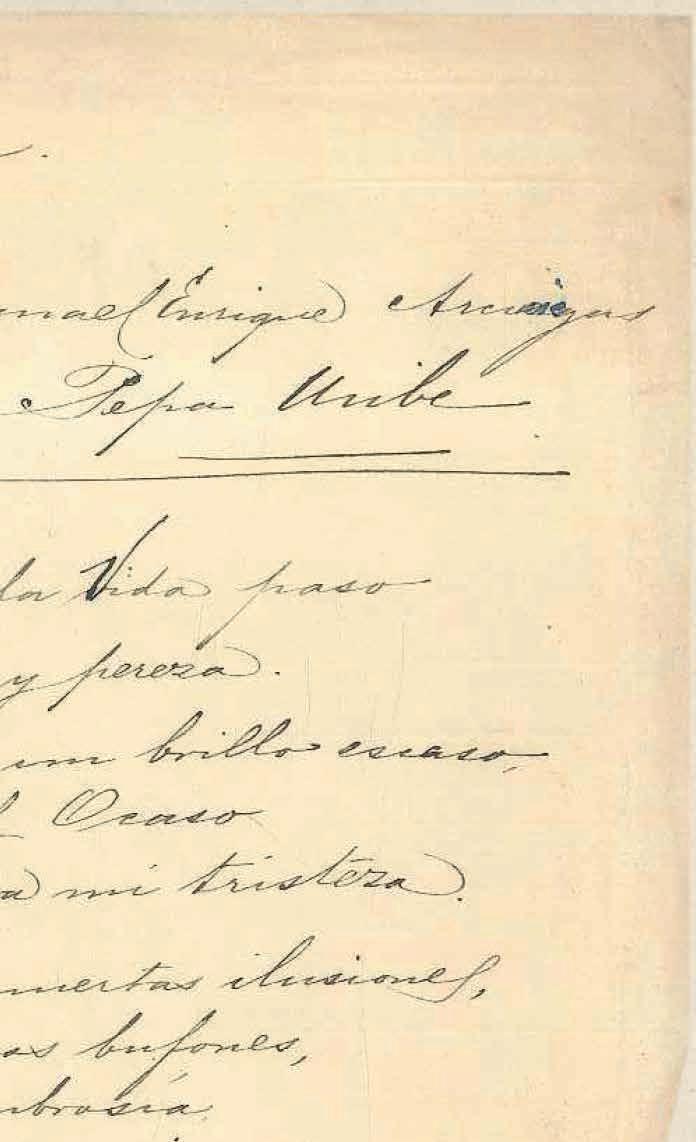 mael Enrique Arciniegas
Pepa Uribe
la Vida paso
y pereza.
un brillo escaso,
Ocaso
mi tristeza.
muertas ilusiones,
bufones,
mbrosía